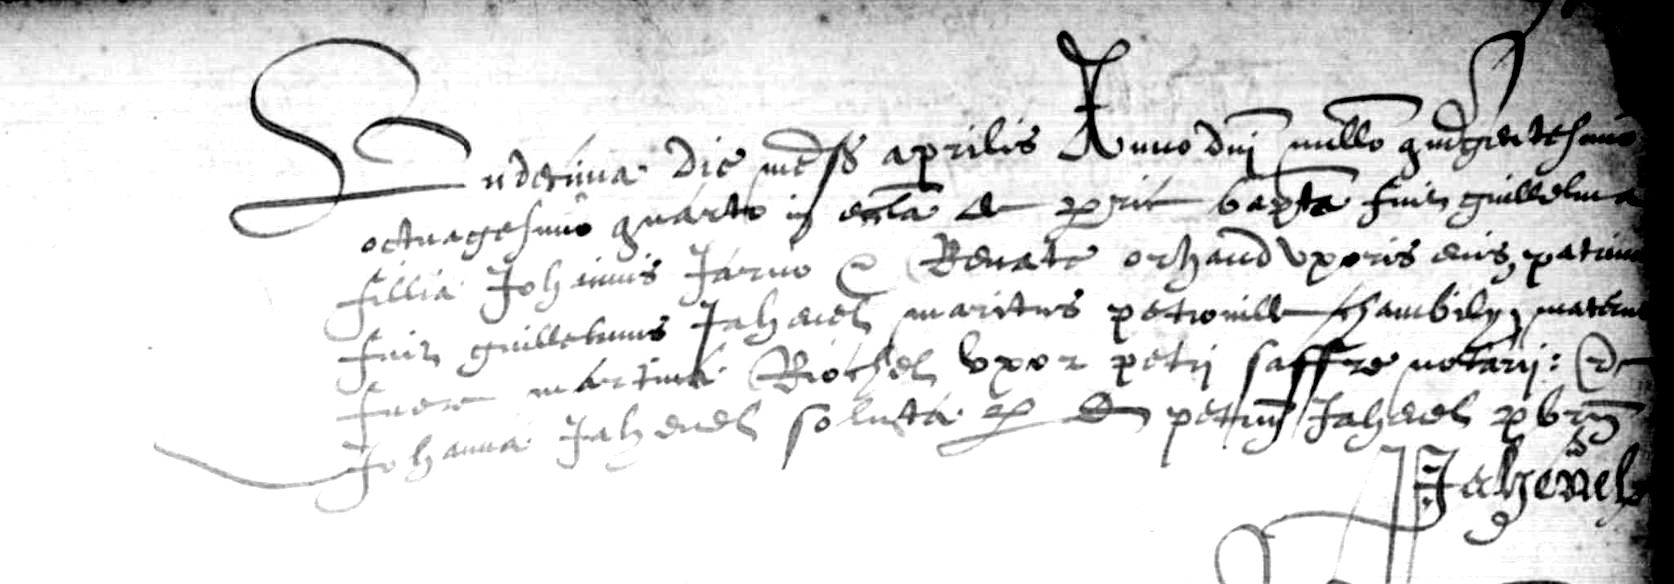 Undecima die mēs aprilis Anno dnī millo quīgentesimo
octuagesimo quarto in eccla de bapta fuit guillelma
fillia Johannis Jarno & Renate orhand uxoris eius, patrinus
fuit guillelmus Jahenel maritus petronille chambily, matrine
fuere martina Riochel uxor petrij saffre notarij: &
Johanna Jahenel soluta per d petrum Jahenel pbrm
Jahenel